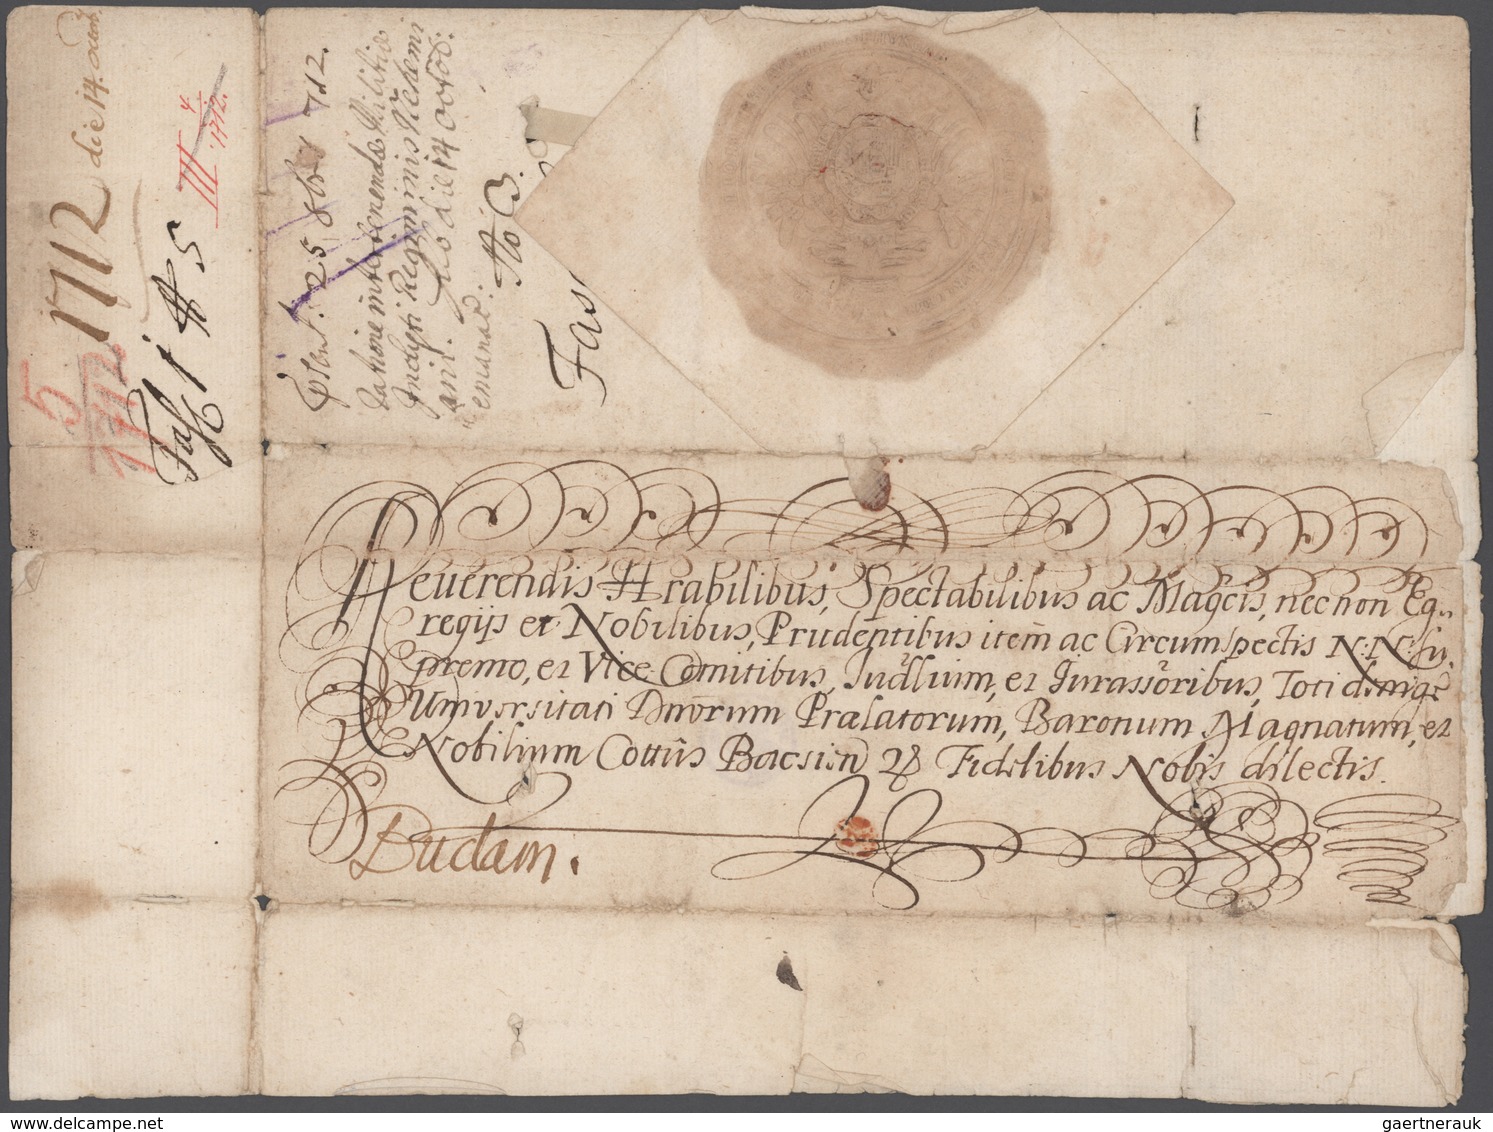 1712 die 14. 
5
1712
Fasc 1 # 5
III 4
1712.
25 8br 712.
Ratione intertenendae Militiae
Inclyti Regiminis Nehemi
ani. die 14 Octob:
emanat:
No 3.
Fas
Reverendis Hrabilibus, Spectabilibus ac Magcis, necnon Eg
regijs et Nobilibus, Prudentibus item ac Circumspectis N: N: Su
premo, et Vice Comitibus, Judlium, et Jurassoribus, Toti deniqe
Universitati Dnorum Praelatorum, Baronum Magnatum, et
Nobilium Cottûs Bacsien & Fidelibus Nobis dilectis.
Budam.
www.delcampe.net
gaertnerauk